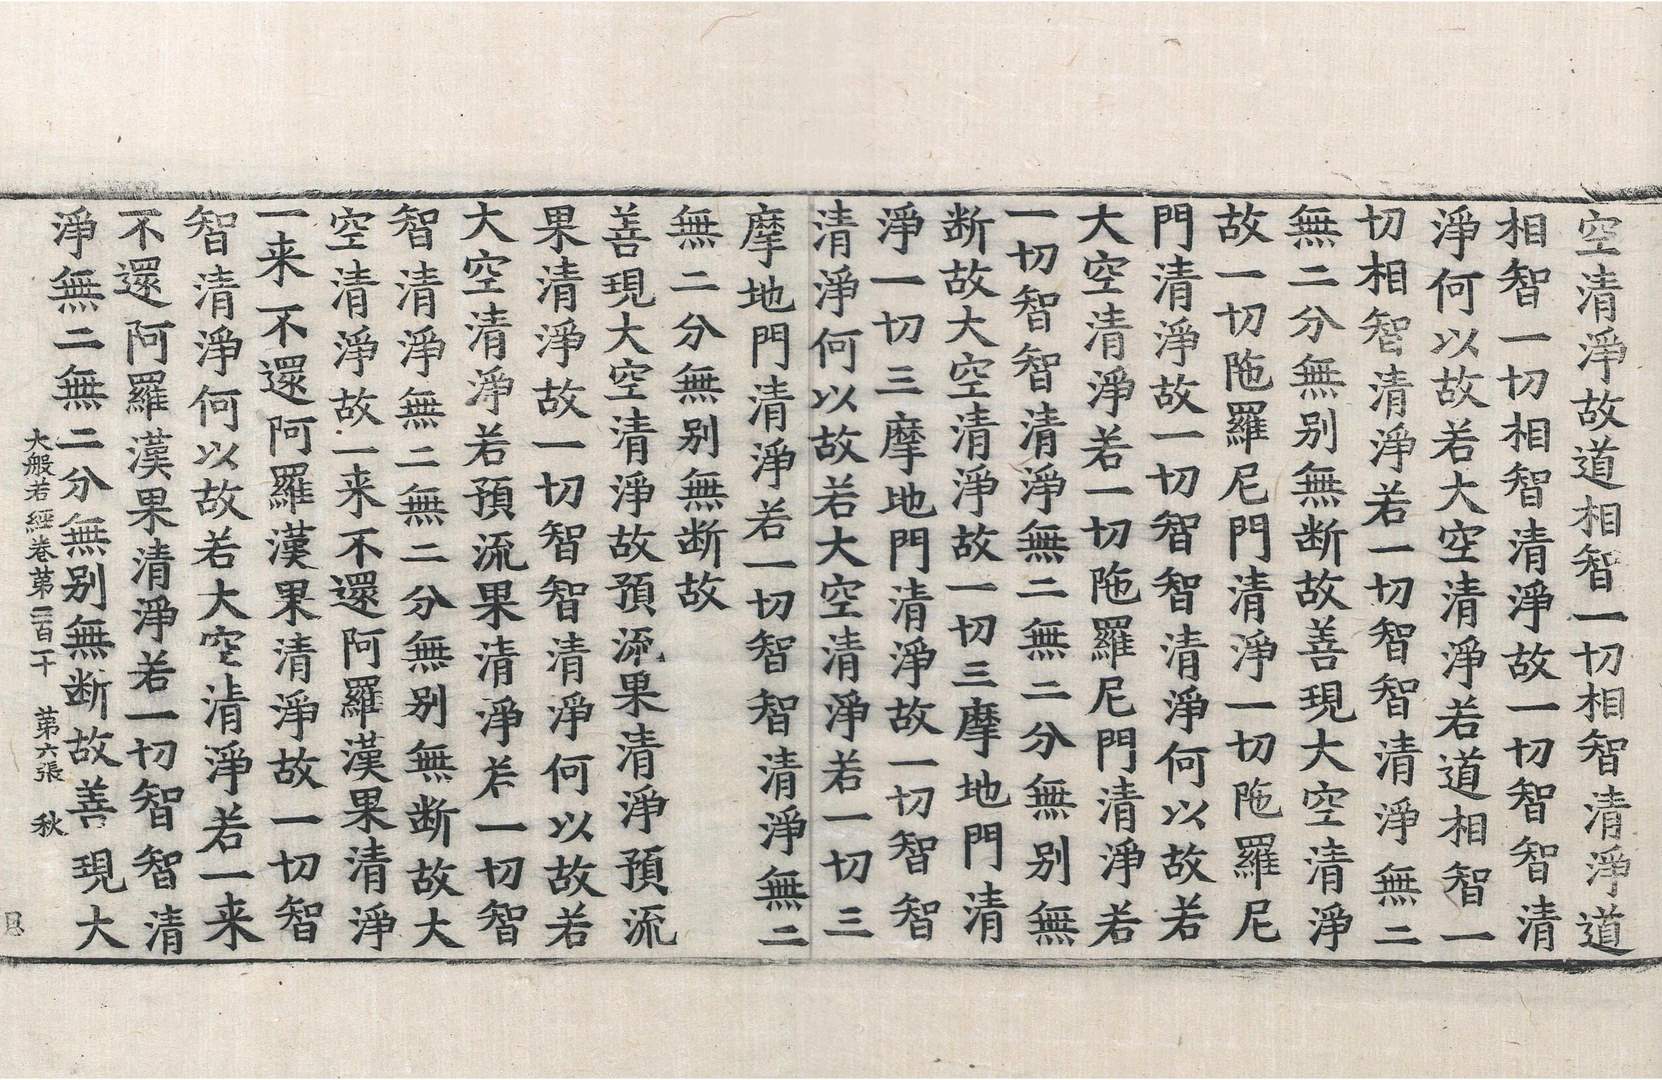 空清淨故道相智一切相智清淨道
相智一切相智清淨故一切智智清
淨何以故若大空清淨若道相智一
切相智清淨若一切智智清淨無二
無二分無别無断故善現大空清淨
故一切陁羅尼門清淨一切陁羅尼
門清淨故一切智智清淨何以故若
大空清淨若一切陁羅尼門清淨若
一切智智清淨無二無二分無别無
断故大空清淨故一切三摩地門清
淨一切三摩地門清淨故一切智智
清淨何以故若大空清淨若一切三
摩地門清淨若一切智智清淨無二
無二分無别無断故
善現大空清淨故預流果清淨預流
果清淨故一切智智清淨何以故若
大空清淨若預流果清淨若一切智
智清淨無二無二分無别無断故大
空清淨故一来不還阿羅漢果清淨
一来不還阿羅漢果清淨故一切智
智清淨何以故若大空清淨若一来
不還阿羅漢果清淨若一切智智清
淨無二無二分無别無断故善現大
大般若經卷第二百一十 第六張 秋